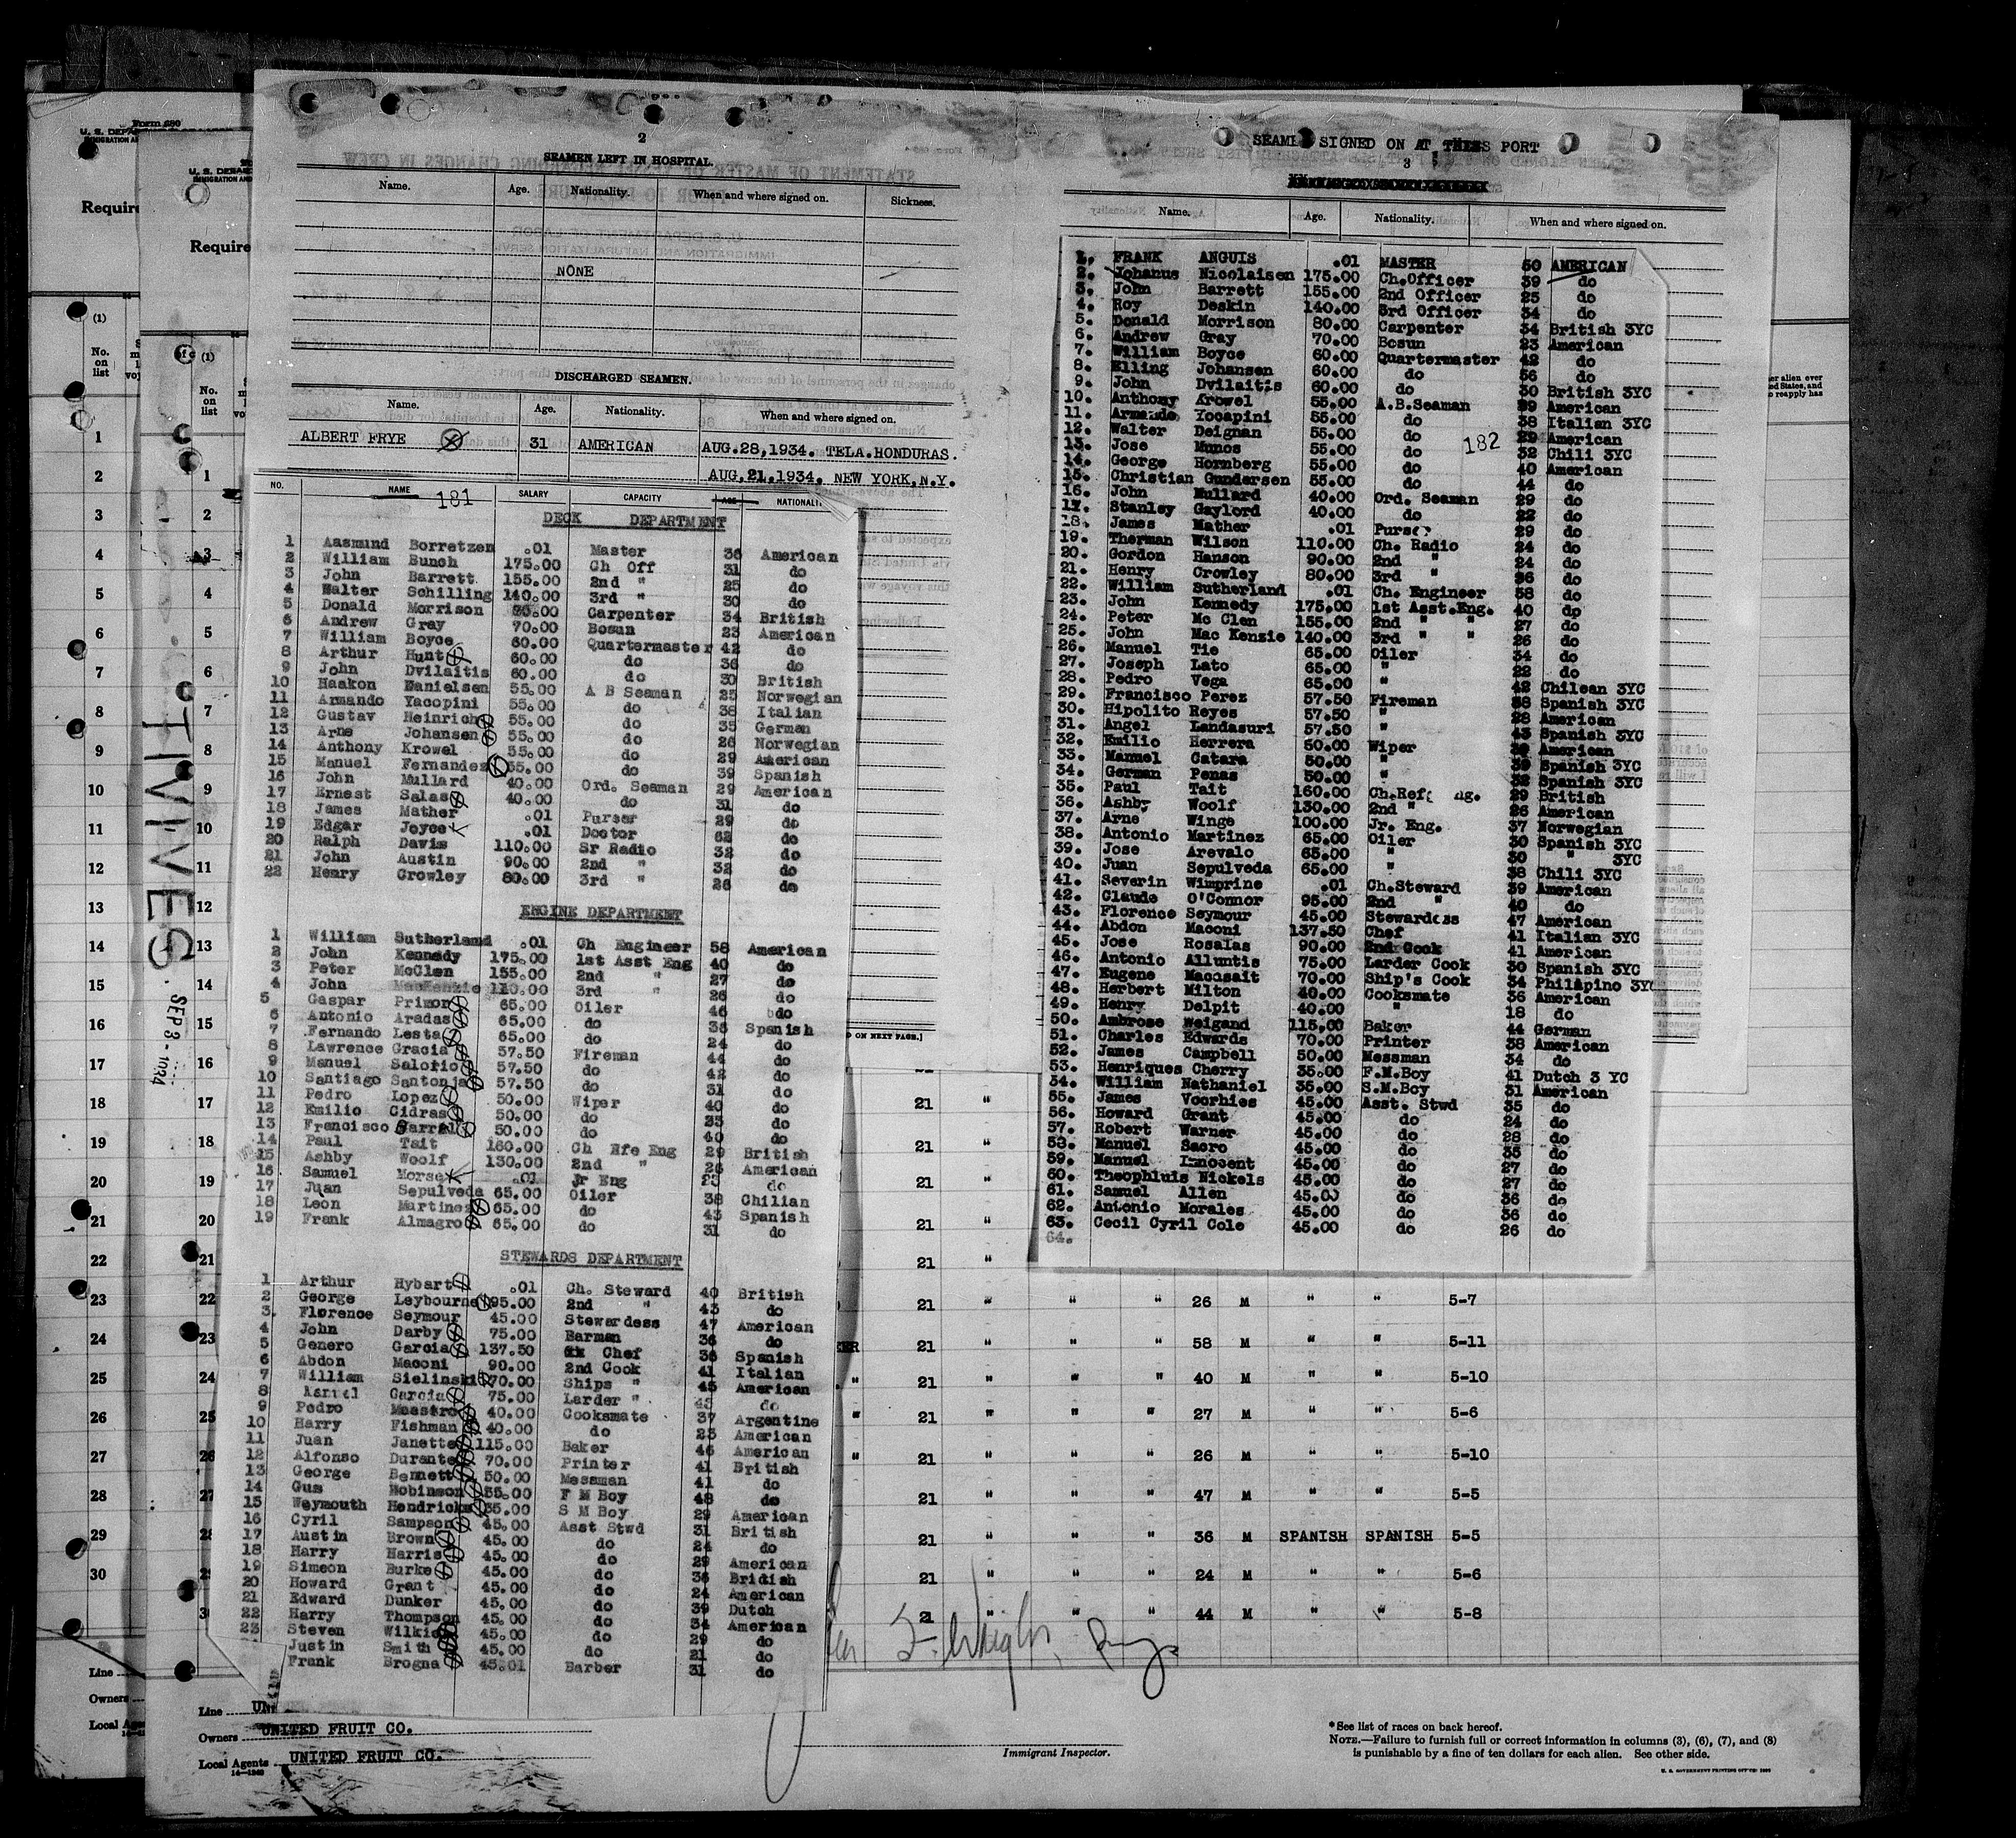 Form 680
U. S. DEPA
IMMIGRATION A
U. S. DEPAR
IMMIGRATION AND
Require
Require
(1)
No. on list
(1)
No. on list
TIVIVES. SEP 3 - 1934
2
SEAMEN LEFT IN HOSPITAL.
Name. Age. Nationality. When and where signed on. Sickness.
NONE
DISCHARGED SEAMEN.
Name. Age. Nationality. When and where signed on.
ALBERT FRYE 31 AMERICAN AUG.28,1934. TELA.HONDURAS.
AUG.21.1934. NEW YORK,N.Y.
NO. NAME 181 SALARY CAPACITY AGE NATIONALI
DECK DEPARTMENT
1 Aasmund Borretzen .01 Master 36 American
2 William Bunch 175.00 Ch Off 31 do
3 John Barrett 155.00 2nd " 25 do
4 Walter Schilling 140.00 3rd " 30 do
5 Donald Morrison 80.00 Carpenter 34 British
6 Andrew Gray 70.00 Bosun 23 American
7 William Boyce 60.00 Quartermaster 42 do
8 Arthur Hunt 60.00 do 36 do
9 John Dvilaitis 60.00 do 30 British
10 Haakon Danielsen 55.00 A B Seaman 25 Norwegian
11 Armando Yacopini 55.00 do 38 Italian
12 Gustav Heinrich 55.00 do 35 German
13 Arne Johansen 55.00 do 26 Norwegian
14 Anthony Krowel 55.00 do 29 American
15 Manuel Fernandes 55.00 do 39 Spanish
16 John Mullard 40.00 Ord. Seaman 29 American
17 Ernest Salas 40.00 do 31 do
18 James Mather .01 Purser 29 do
19 Edgar Joyce .01 Doctor 62 do
20 Ralph Davis 110.00 Sr Radio 32 do
21 John Austin 90.00 2nd " 32 do
22 Henry Crowley 80.00 3rd " 26 do
ENGINE DEPARTMENT
1 William Sutherland .01 Ch Engineer 58 American
2 John Kennedy 175.00 1st Asst Eng 40 do
3 Peter McClen 155.00 2nd " 27 do
4 John MacKenzie 140.00 3rd " 26 do
5 Gaspar Primon 65.00 Oiler 46 do
6 Antonio Aradas 65.00 do 36 Spanish
7 Fernando Lesta 65.00 do 24 do
8 Lawrence Gracia 57.50 Fireman 44 do
9 Manuel Salorio 57.50 do 42 do
10 Santiago Santonja 57.50 do 31 do
11 Pedro Lopez 50.00 Wiper 40 do
12 Emilio Cidras 50.00 do 35 do
13 Francisco 50.00 do 40 do
14 Paul Tait 160.00 Ch Rfe Eng 29 British
15 Ashby Woolf 130.00 2nd " 26 American
16 Samuel Morse .01 Jr Eng 23 do
17 Juan Sepulveda 65.00 Oiler 38 Chilian
18 Leon Martines 65.00 do 43 Spanish
19 Frank Almagro 65.00 do 31 do
STEWARDS DEPARTMENT
1 Arthur Hybart .01 Ch. Steward 40 British
2 George Leybourne 95.00 2nd " 43 do
3 Florence Seymour 45.00 Stewardess 47 American
4 John Darby 75.00 Barman 36 do
5 Genero Garcia 137.50 Chef 36 Spanish
6 Abdon Maconi 90.00 2nd Cook 41 Italian
7 William Sielinski 70.00 Ships " 45 American
8 Garcia 75.00 Larder " 43 do
9 Pedro Maestro 40.00 Cooksmate 37 Argentine
10 Harry Fishman 40.00 do 23 American
11 Juan Janette 115.00 Baker 46 American
12 Alfonso Durante 70.00 Printer 41 British
13 George Bennett 50.00 Messman 41 do
14 Gus Robinson 35.00 F M Boy 48 do
15 Weymouth Hendricks 35.00 S M Boy 29 American
16 Cyril Sampson 45.00 Asst Stwd 31 British
17 Austin Brown 45.00 do 24 do
18 Harry Harris 45.00 do 29 American
19 Simeon Burke 45.00 do 36 British
20 Howard Grant 45.00 do 24 American
21 Edward Dunker 45.00 do 39 Dutch
22 Harry Thompson 45.00 do 34 American
23 Steven Wilkie 45.00 do 29 do
Justin Smith 45.00 do 21 do
Frank Brogna 45.01 Barber 31 do
SEAMEN SIGNED ON AT THIS PORT
3
Name. Age. Nationality. When and where signed on.
182
1. FRANK ANGUIS .01 MASTER 50 AMERICAN
2. Johanus Nicolaisen 175.00 Ch.Officer 39 do
3. John Barrett 155.00 2nd Officer 25 do
4. Roy Deskin 140.00 3rd Officer 34 do
5. Donald Morrison 80.00 Carpenter 34 British 3YC
6. Andrew Gray 70.00 Bosun 23 American
7. William Boyce 60.00 Quartermaster 42 do
8. Elling Johansen 60.00 do 56 do
9. John Dvilaitis 60.00 do 30 British 3YC
10. Anthony Krowel 55.00 A.B.Seaman 29 American
11. Armando Yocapini 55.00 do 38 Italian 3YC
12. Walter Deignan 55.00 do 29 American
13. Jose Munos 55.00 do 32 Chili 3YC
14. George Hornberg 55.00 do 40 American
15. Christian Gundersen 55.00 do 44 do
16. John Mullard 40.00 Ord. Seaman 29 do
17. Stanley Gaylord 40.00 do 22 do
18. James Mather .01 Purser 29 do
19. Therman Wilson 110.00 Ch. Radio 24 do
20. Gordon Hanson 90.00 2nd " 24 do
21. Henry Crowley 80.00 3rd " 26 do
22. William Sutherland .01 Ch. Engineer 58 do
23. John Kennedy 175.00 1st Asst.Eng. 40 do
24. Peter Mc Clen 155.00 2nd " " 27 do
25. John Mac Kenzie 140.00 3rd " " 26 do
26. Manuel Tie 65.00 Oiler 34 do
27. Joseph Lato 65.00 " 22 do
28. Pedro Vega 65.00 " 42 Chilean 3YC
29. Francisco Perez 57.50 Fireman 38 Spanish 3YC
30. Hipolito Reyes 57.50 " 28 American
31. Angel Landasuri 57.50 " 43 Spanish 3YC
32. Emilio Herrera 50.00 Wiper American
33. Manuel Catara 50.00 " 39 Spanish 3YC
34. German Penas 50.00 " 32 Spanish 3YC
35. Paul Tait 160.00 Ch.Ref ng. 29 British
36. Ashby Woolf 130.00 2nd " 26 American
37. Arne Winge 100.00 Jr. Eng. 37 Norwegian
38. Antonio Martinez 65.00 Oiler 30 Spanish 3YC
39. Jose Arevalo 65.00 " 30 " 3YC
40. Juan Sepulveda 65.00 " 38 Chili 3YC
41. Severin Wimprine .01 Ch.Steward 39 American
42. Claude O'Connor 95.00 2nd " 40 do
43. Florence Seymour 45.00 Stewardess 47 American
44. Abdon Maconi 137.50 Chef 41 Italian 3YC
45. Jose Rosalas 90.00 2nd Cook 41 American
46. Antonio Alluntis 75.00 Larder Cook 30 Spanish 3YC
47. Eugene Macasait 70.00 Ship's Cook 34 Philapino 3YC
48. Herbert Milton 40.00 Cooksmate 36 American
49. Henry Delpit 40.00 " 18 do
50. Ambrose Weigand 115.00 Baker 44 German
51. Charles Edwards 70.00 Printer 38 American
52. James Campbell 50.00 Messman 34 do
53. Henriques Cherry 35.00 F.M.Boy 41 Dutch 3 YC
54. William Nathaniel 35.00 S.M.Boy 31 American
55. James Voorhies 45.00 Asst. Stwd 35 do
56. Howard Grant 45.00 do 24 do
57. Robert Warner 45.00 do 28 do
58. Manuel Sacro 45.00 do 35 do
59. Manuel Innocent 45.00 do 27 do
60. Theophluis Nickels 45.00 do 27 do
61. Samuel Allen 45.00 do 36 do
62. Antonio Morales 45.00 do 36 do
63. Cecil Cyril Cole 45.00 do 26 do
64.
D ON NEXT PAGE.]
21 "
21 "
21 "
21 "
21 "
21 " " " 26 M " " 5-7
21 " " " 58 M " " 5-11
" 21 " " " 40 M " " 5-10
" 21 " " " 27 M " " 5-6
" 21 " " " 26 M " " 5-10
21 " " " 47 M " " 5-5
21 " " " 36 M SPANISH SPANISH 5-5
21 " " " 24 M " " 5-6
21 " " " 44 M " " 5-8
Line
Owners
Local Ag
Line UN
Owners UNITED FRUIT CO.
Local Agents UNITED FRUIT CO.
14-1240
Immigrant Inspector.
*See list of races on back hereof.
NOTE.—Failure to furnish full or correct information in columns (3), (6), (7), and (8)
is punishable by a fine of ten dollars for each alien. See other side.
U. S. GOVERNMENT PRINTING OFFICE